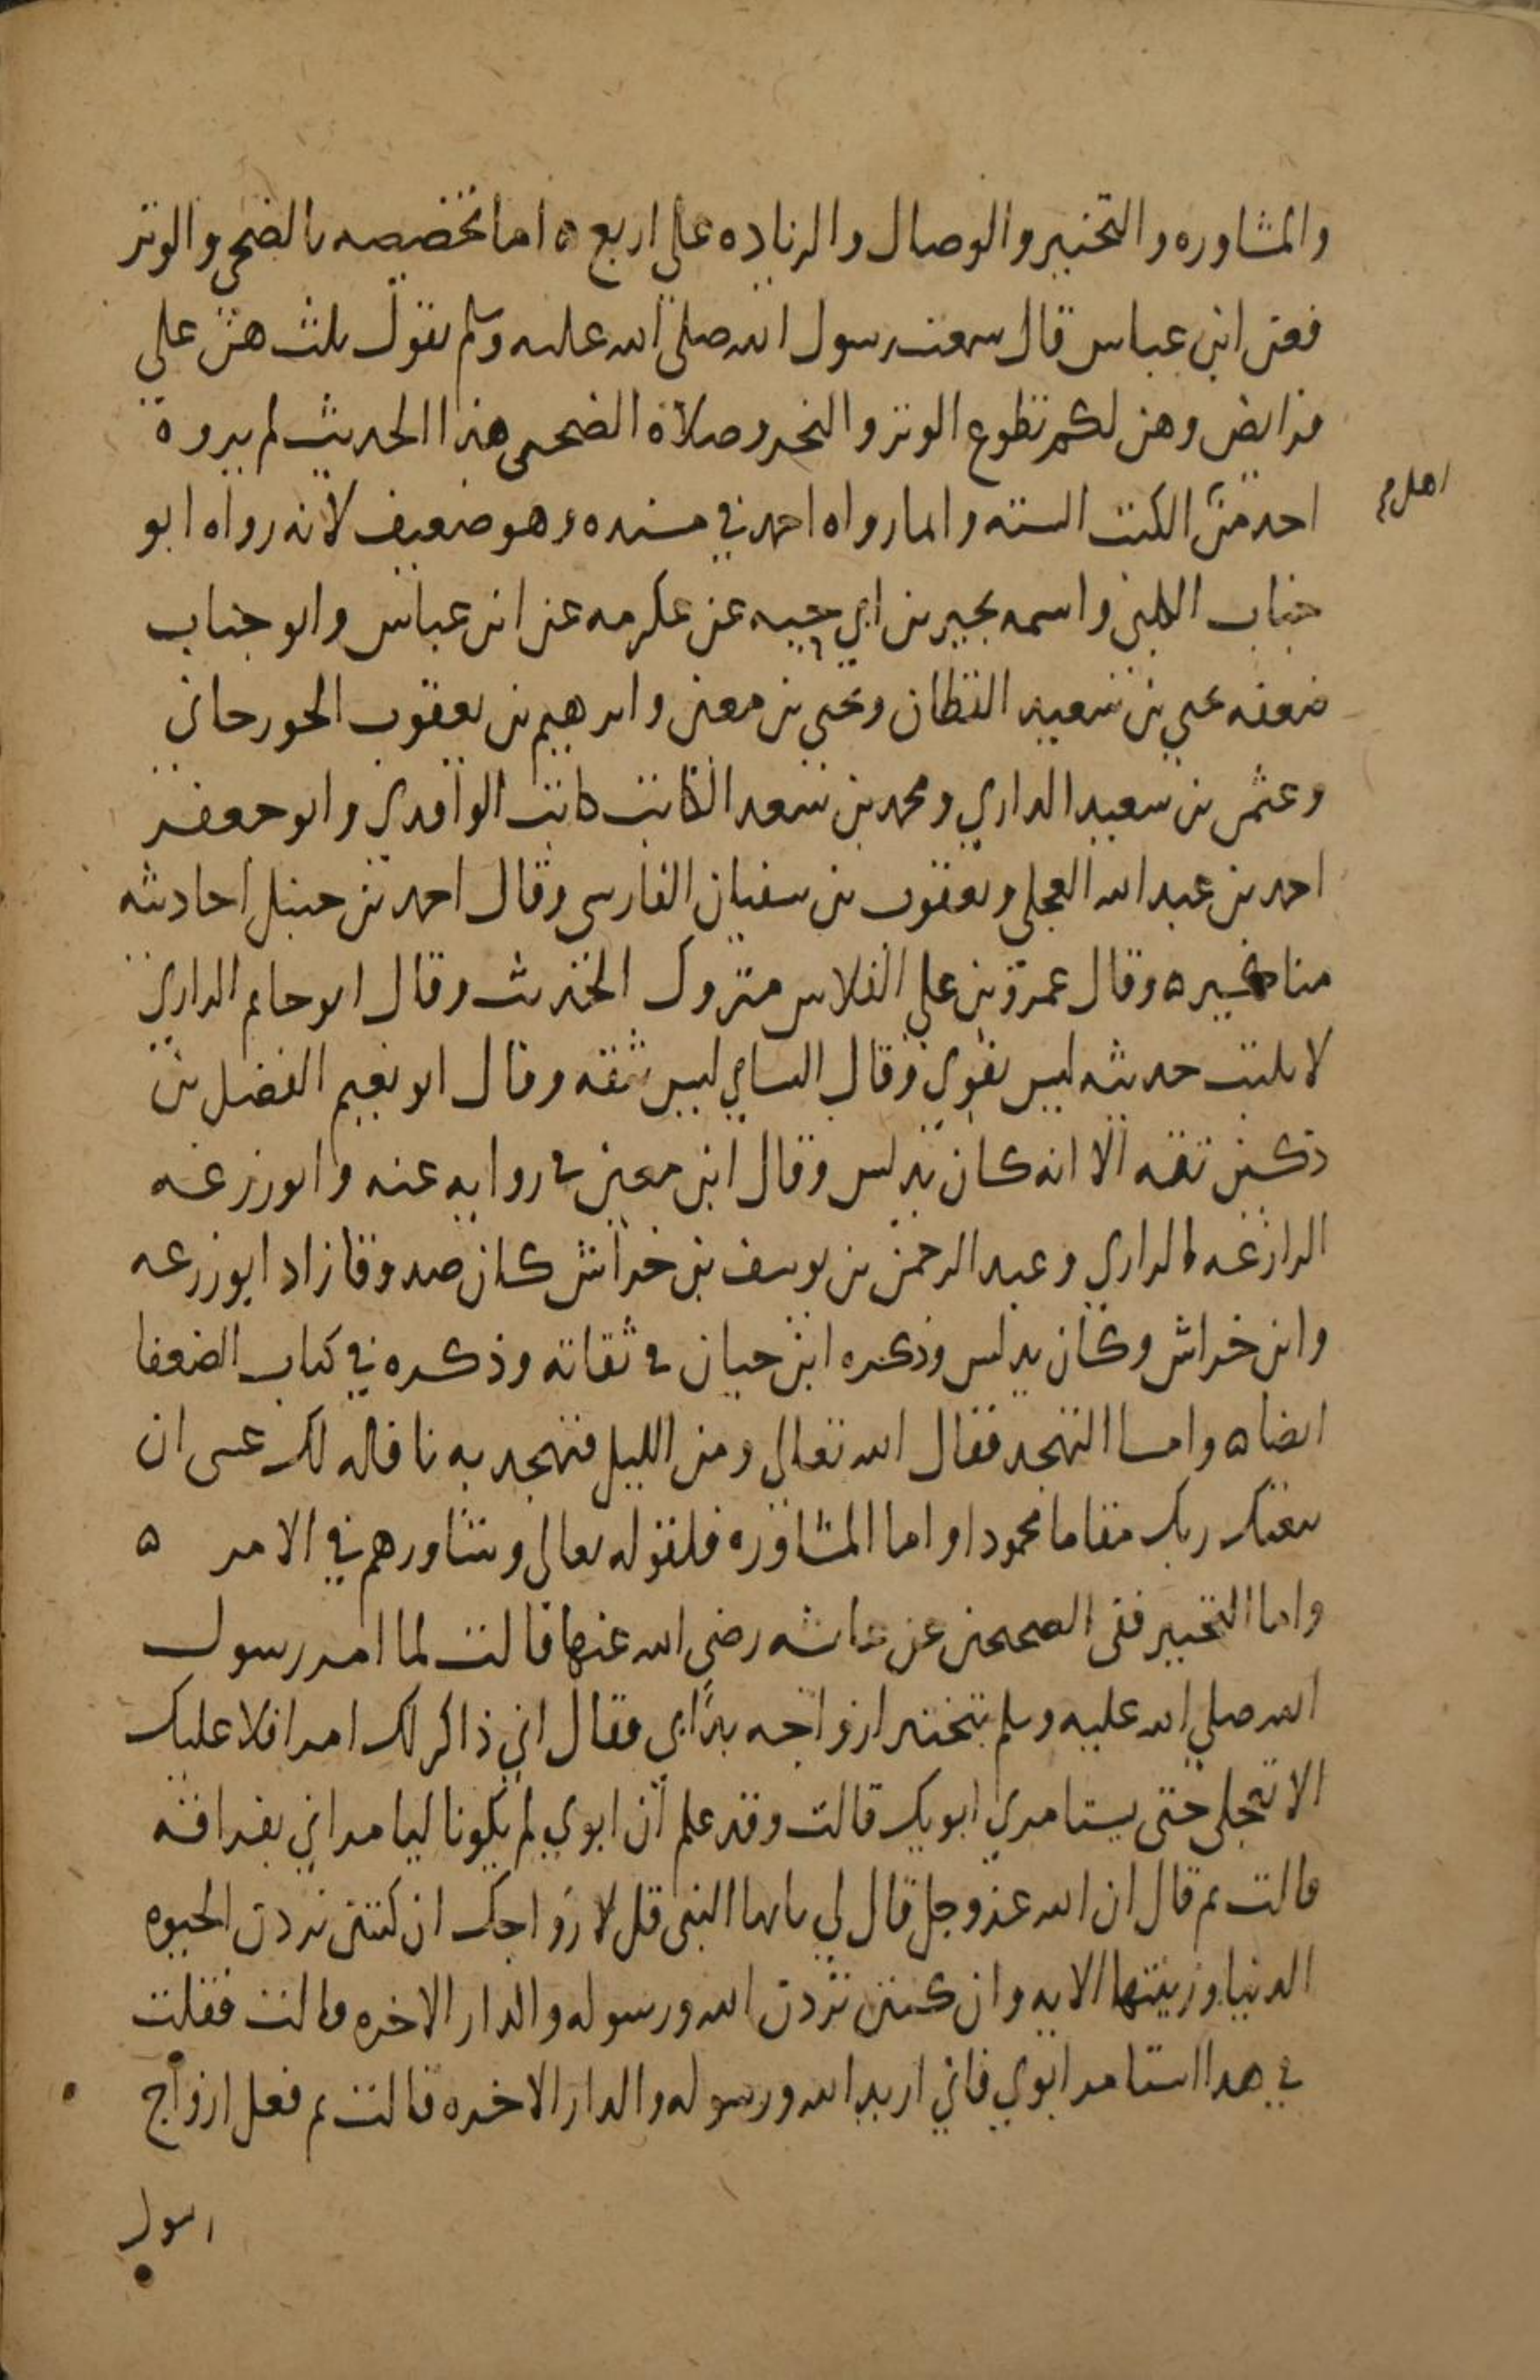 والمشاوره والتخيير والوصال والزياده على اربع ه اما تخصيصه بالضحى والوتر
فعن ابن عباس قال سمعت رسول الله صلى الله عليه وسلم يقول ثلث هن علي
فرايض وهن لكم تطوع الوتر والنحر وصلاة الضحى هذا الحديث لم يروه
احد من الكتب السته وانما رواه احمد في مسنده وهو ضعيف لانه رواه ابو
اهل م
جناب الكلبي واسمه يحيى بن ابي حيه عن عكرمه عن ابن عباس وابو جناب
ضعفه يحيى بن سعيد القطان ويحيى بن معين وابرهيم بن يعقوب الجورجاني
وعثمن بن سعيد الداري ومحمد بن سعد الكاتب كاتب الواقدي وابو جعفر
احمد بن عبد الله العجلي ويعقوب بن سفيان الفارسي وقال احمد بن حنبل احاديثه
مناكير ه وقال عمرو بن علي الفلاس متروك الحديث وقال ابو حاتم الداري
لا يكتب حديثه ليس بقوي وقال النساي ليس بثقه وقال ابو نعيم الفضل بن
دكين ثقه الا انه كان يدلس وقال ابن معين في روايه عنه وابو زرعه
الرازي وعبد الرحمن بن يوسف بن خراش كان صدوقا زاد ابو زرعه
وابن خراش وكان يدلس وذكره ابن حبان في ثقاته وذكره في كتاب الضعفا
ايضا ه واما التهجد فقال الله تعالى ومن الليل فتهجد به نافله لك عسى ان
يبعثك ربك مقاما محمودا واما المشاوره فلقوله تعالى وشاورهم في الامر ه
واما التخيير ففي الصحيحين عن عائشه رضي الله عنها قالت لما امر رسول
الله صلي الله عليه وسلم بتخيير ازواجه بدأ بي فقال اني ذاكر لك امرا فلا عليك
الا تعجلي حتى يستامري ابويك قالت وقد علم أن ابوي لم يكونا ليامراني بفراقه
قالت ثم قال ان الله عز وجل قال لي يايها النبي قل لازواجك ان كنتن تردن الحيوه
الدنيا وزينتها الايه وان كنتن تردن الله ورسوله والدار الاخره قالت فقلت
في هذا استامر ابوي فاني اريد الله ورسوله والدار الاخره قالت ثم فعل ازواج
رسول